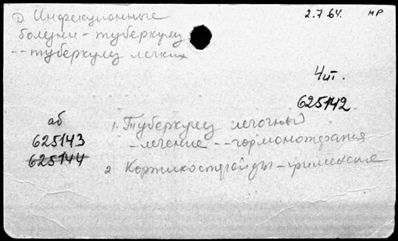 D Инфекционные 2.7.64. МР
болезни - туберкулез
-- туберкулез легких
Чит.
625142
аб
625143
625144
1. Туберкулез легочный
- лечение -- гормонотерапия
2 Кортикостероиды - применение